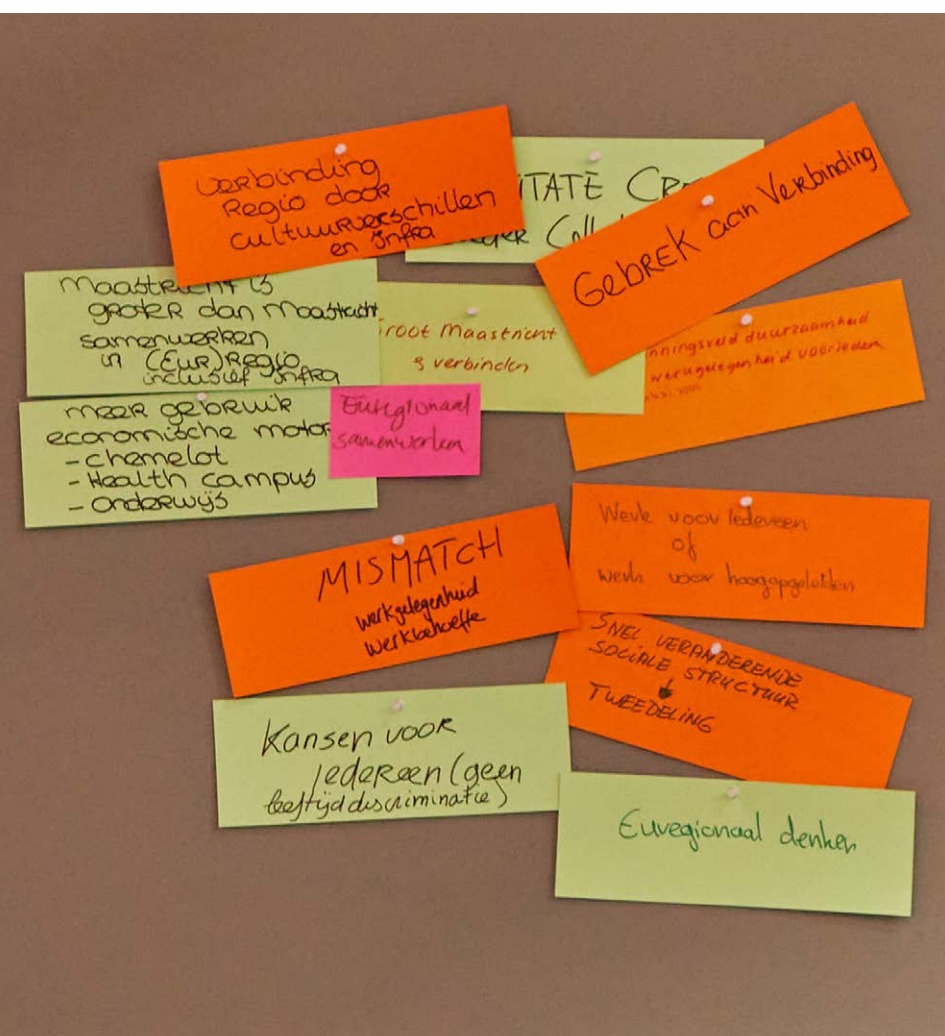 Verbinding
Regio door
Cultuurverschillen
en infra
ITATE CR
Coll
GEBREK aan Verbinding
Maastricht is
groter dan Maastricht
samenwerken
in (Eur)Regio
inclusief infra
root Maastricht
& verbinden
nningsveld duurzaamheid
werkgelegenheid voor ieder
meer gebruik
economische motor
- chemelot
- Health campus
- onderwijs
Euregionaal
samenwerken
MISMATCH
werkgelegenheid
werkbehoefte
Werk voor Iedereen
of
werk voor hoogopgeleiden
SNEL VERANDERENDE
SOCIALE STRUCTUUR
↓
TWEEDELING
Kansen voor
Iedereen (geen
leeftijd discriminatie)
Euregionaal denken